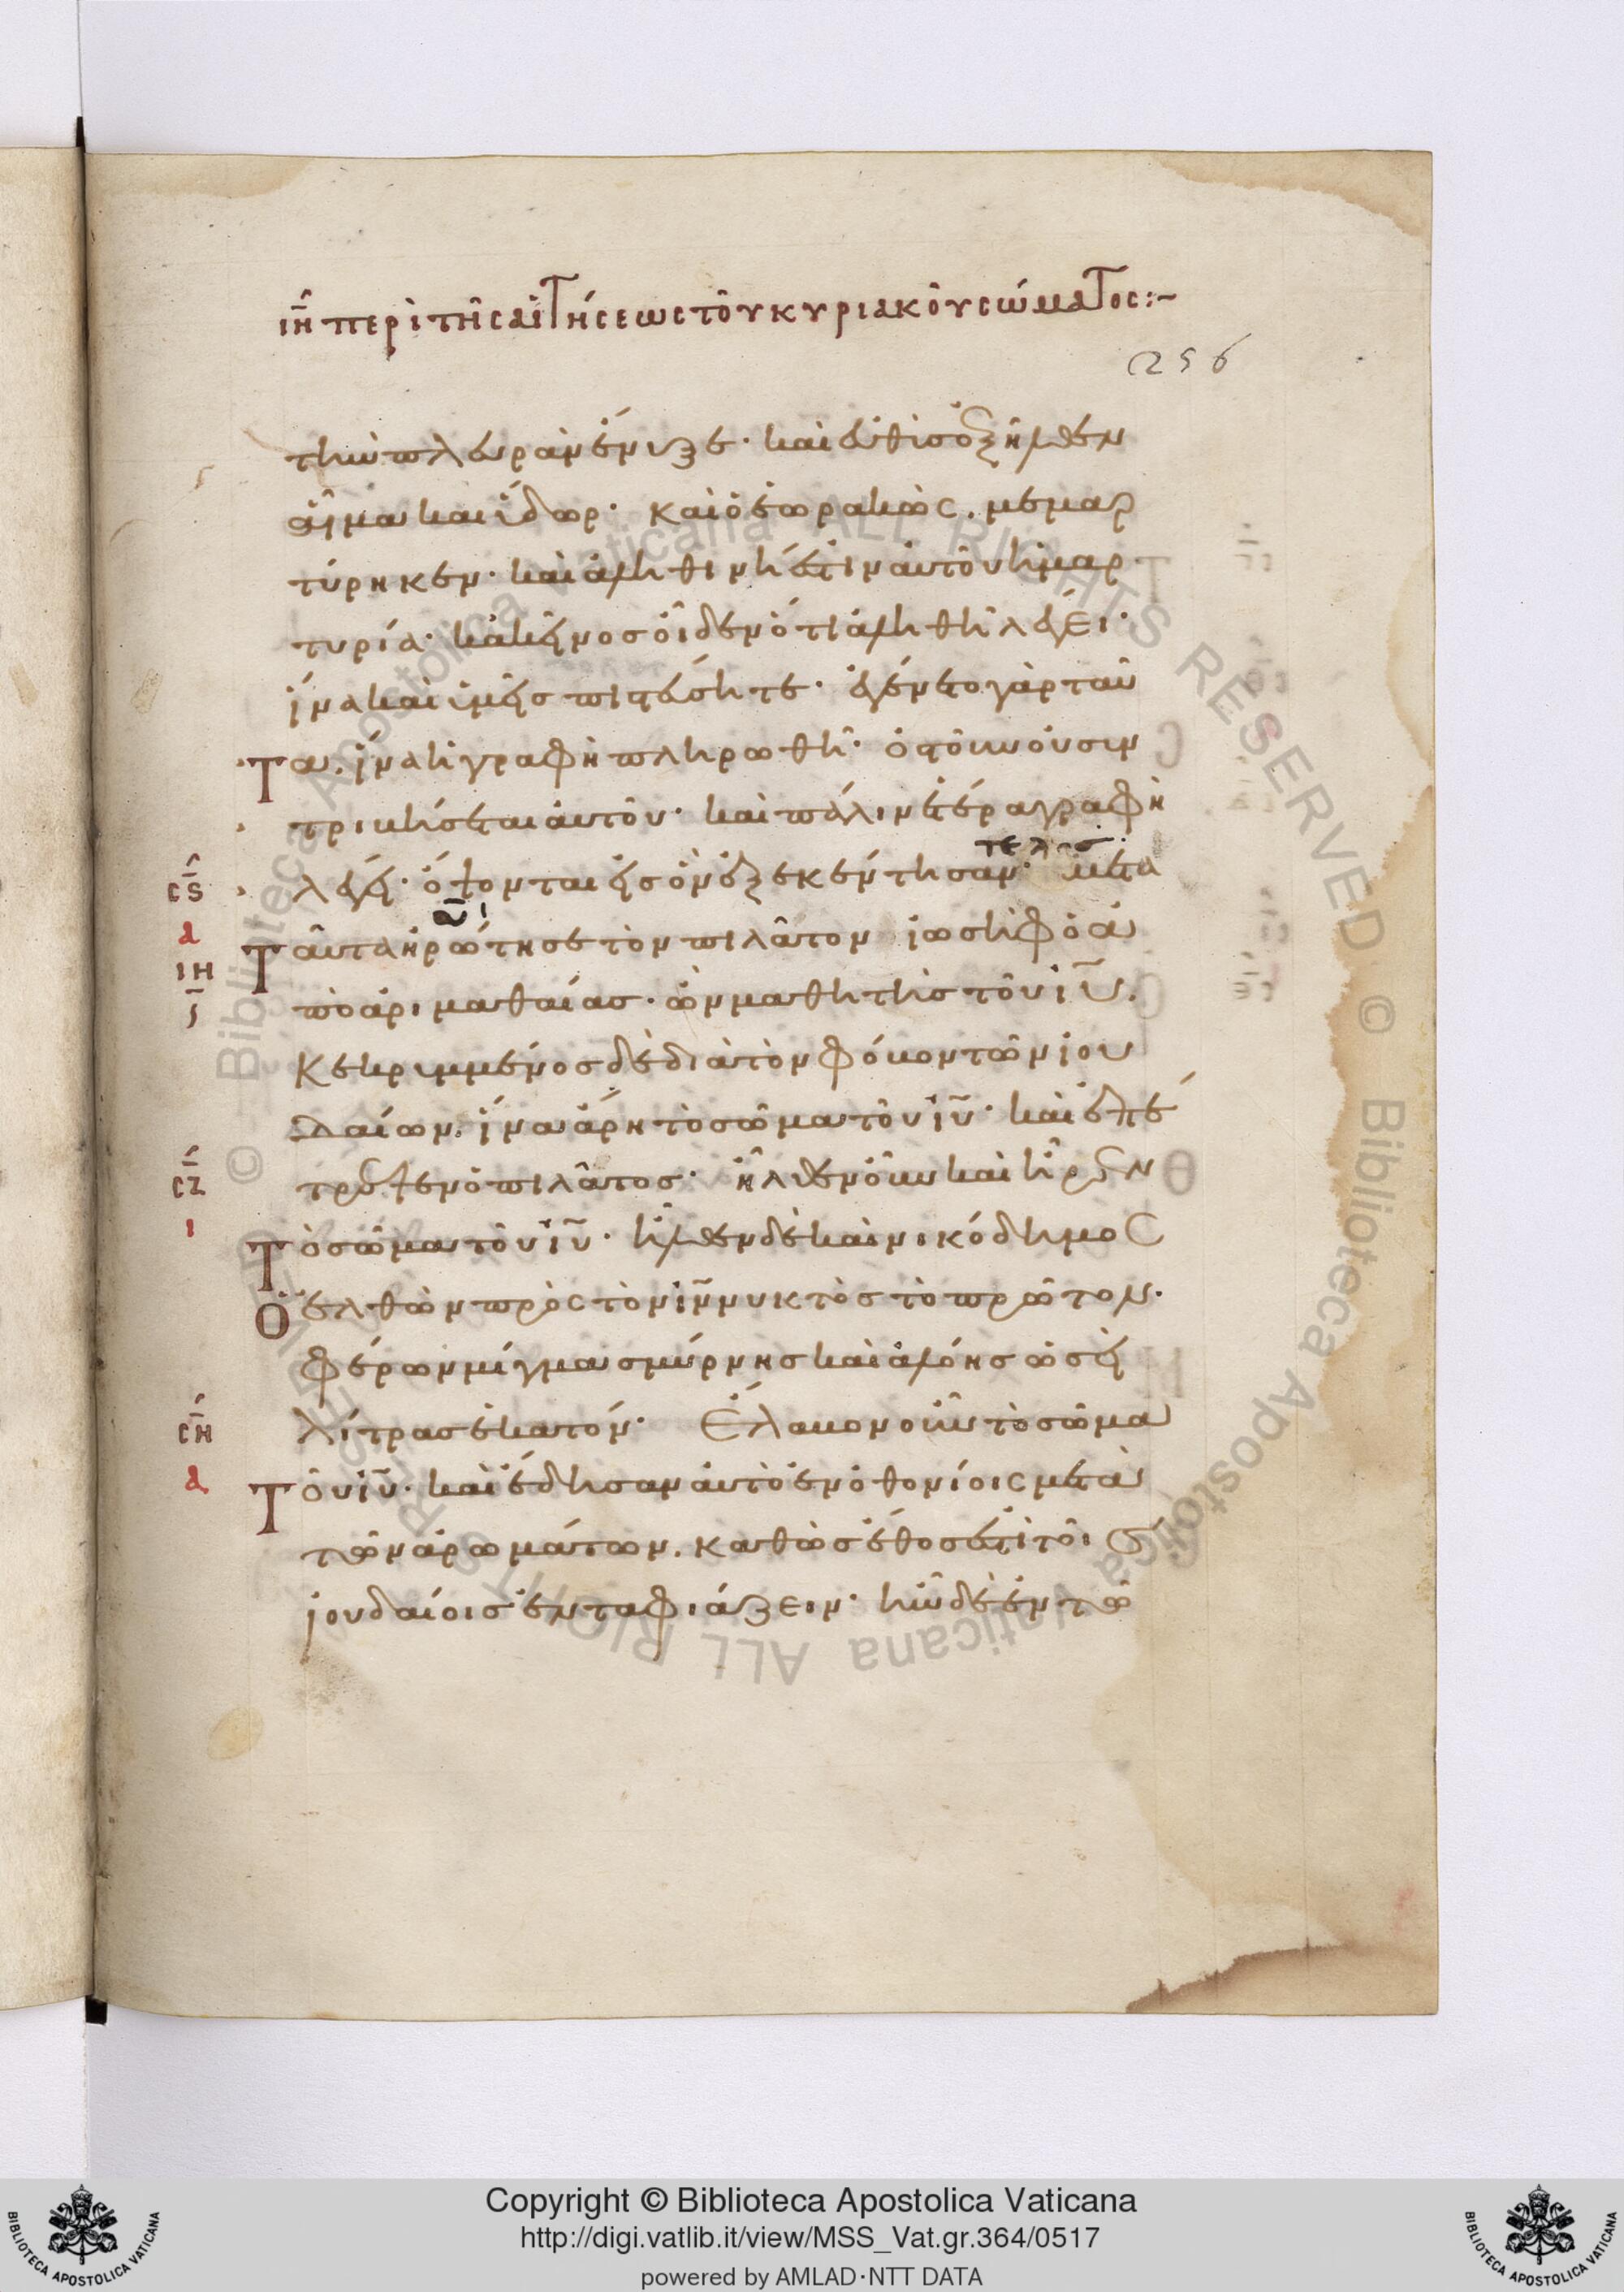 ιη περὶ τῆς αἰτήσεως τοῦ κυριακοῦ σώματος:~
256
τὴν πλευρὰν ἔνυξε· καὶ εὐθὺς ἐξῆλθεν
αἷμα καὶ ὕδωρ· καὶ ὁ ἑωρακὼς. μεμαρ
τύρηκεν· καὶ ἀληθινή ἐστιν αὐτοῦ ἡ μαρ
τυρία· κἀκεῖνος οἶδεν ὅτι ἀληθῆ λέγει·
ἵνα καὶ ὑμεῖς πιστεύσητε· ἐγένετο γὰρ ταῦ
τα. ἵνα ἡ γραφὴ πληρωθῆ· ὀστοῦν οὐ συν
τριβήσεται αὐτοῦ· καὶ πάλιν ἑτέρα γραφὴ
λέγει· ὄψονται εἰς ὃν ἐξεκέντησαν· μετὰ
τελος
ταῦτα ἠρώτησε τὸν πιλᾶτον ἰωσὴφ ὁ ἀ
πὸ ἀριμαθαίας· ὢν μαθητὴς τοῦ ιυ.
κεκρυμμένος δὲ διὰ τὸν φόβον τῶν ἰου
δαίων. ἵνα ἄρη τὸ σῶμα τοῦ ιυ· καὶ ἐπέ
τρεψεν ὁ πιλᾶτος· ἦλθεν οὖν καὶ ἦρεν
τὸ σῶμα τοῦ ιυ· ἦλθεν δὲ καὶ νικόδημος
ὁ ἐλθὼν πρὸς τὸν ιν νυκτὸς τὸ πρῶτον.
φέρων μίγμα σμύρνης καὶ ἀλόης ὡσεὶ
λίτρας ἑκατόν· Ἔλαβον οὖν τὸ σῶμα
τοῦ ιυ· καὶ ἔδησαν αὐτὸ ἐν ὀθονίοις μετὰ
τῶν ἀρωμάτων. καθὼς ἔθος ἐστὶ τοῖς
ἰουδαίοις ἐνταφιάζειν· ἦν δὲ ἐν τῶ
ϲϛ
α
ιη
ϲζ
ι
ϲη
α
Copyright © Biblioteca Apostolica Vaticana
http://digi.vatlib.it/view/MSS_Vat.gr.364/0517
powered by AMLAD·NTT DATA
BIBLIOTECA APOSTOLICA VATICANA
BIBLIOTECA APOSTOLICA VATICANA